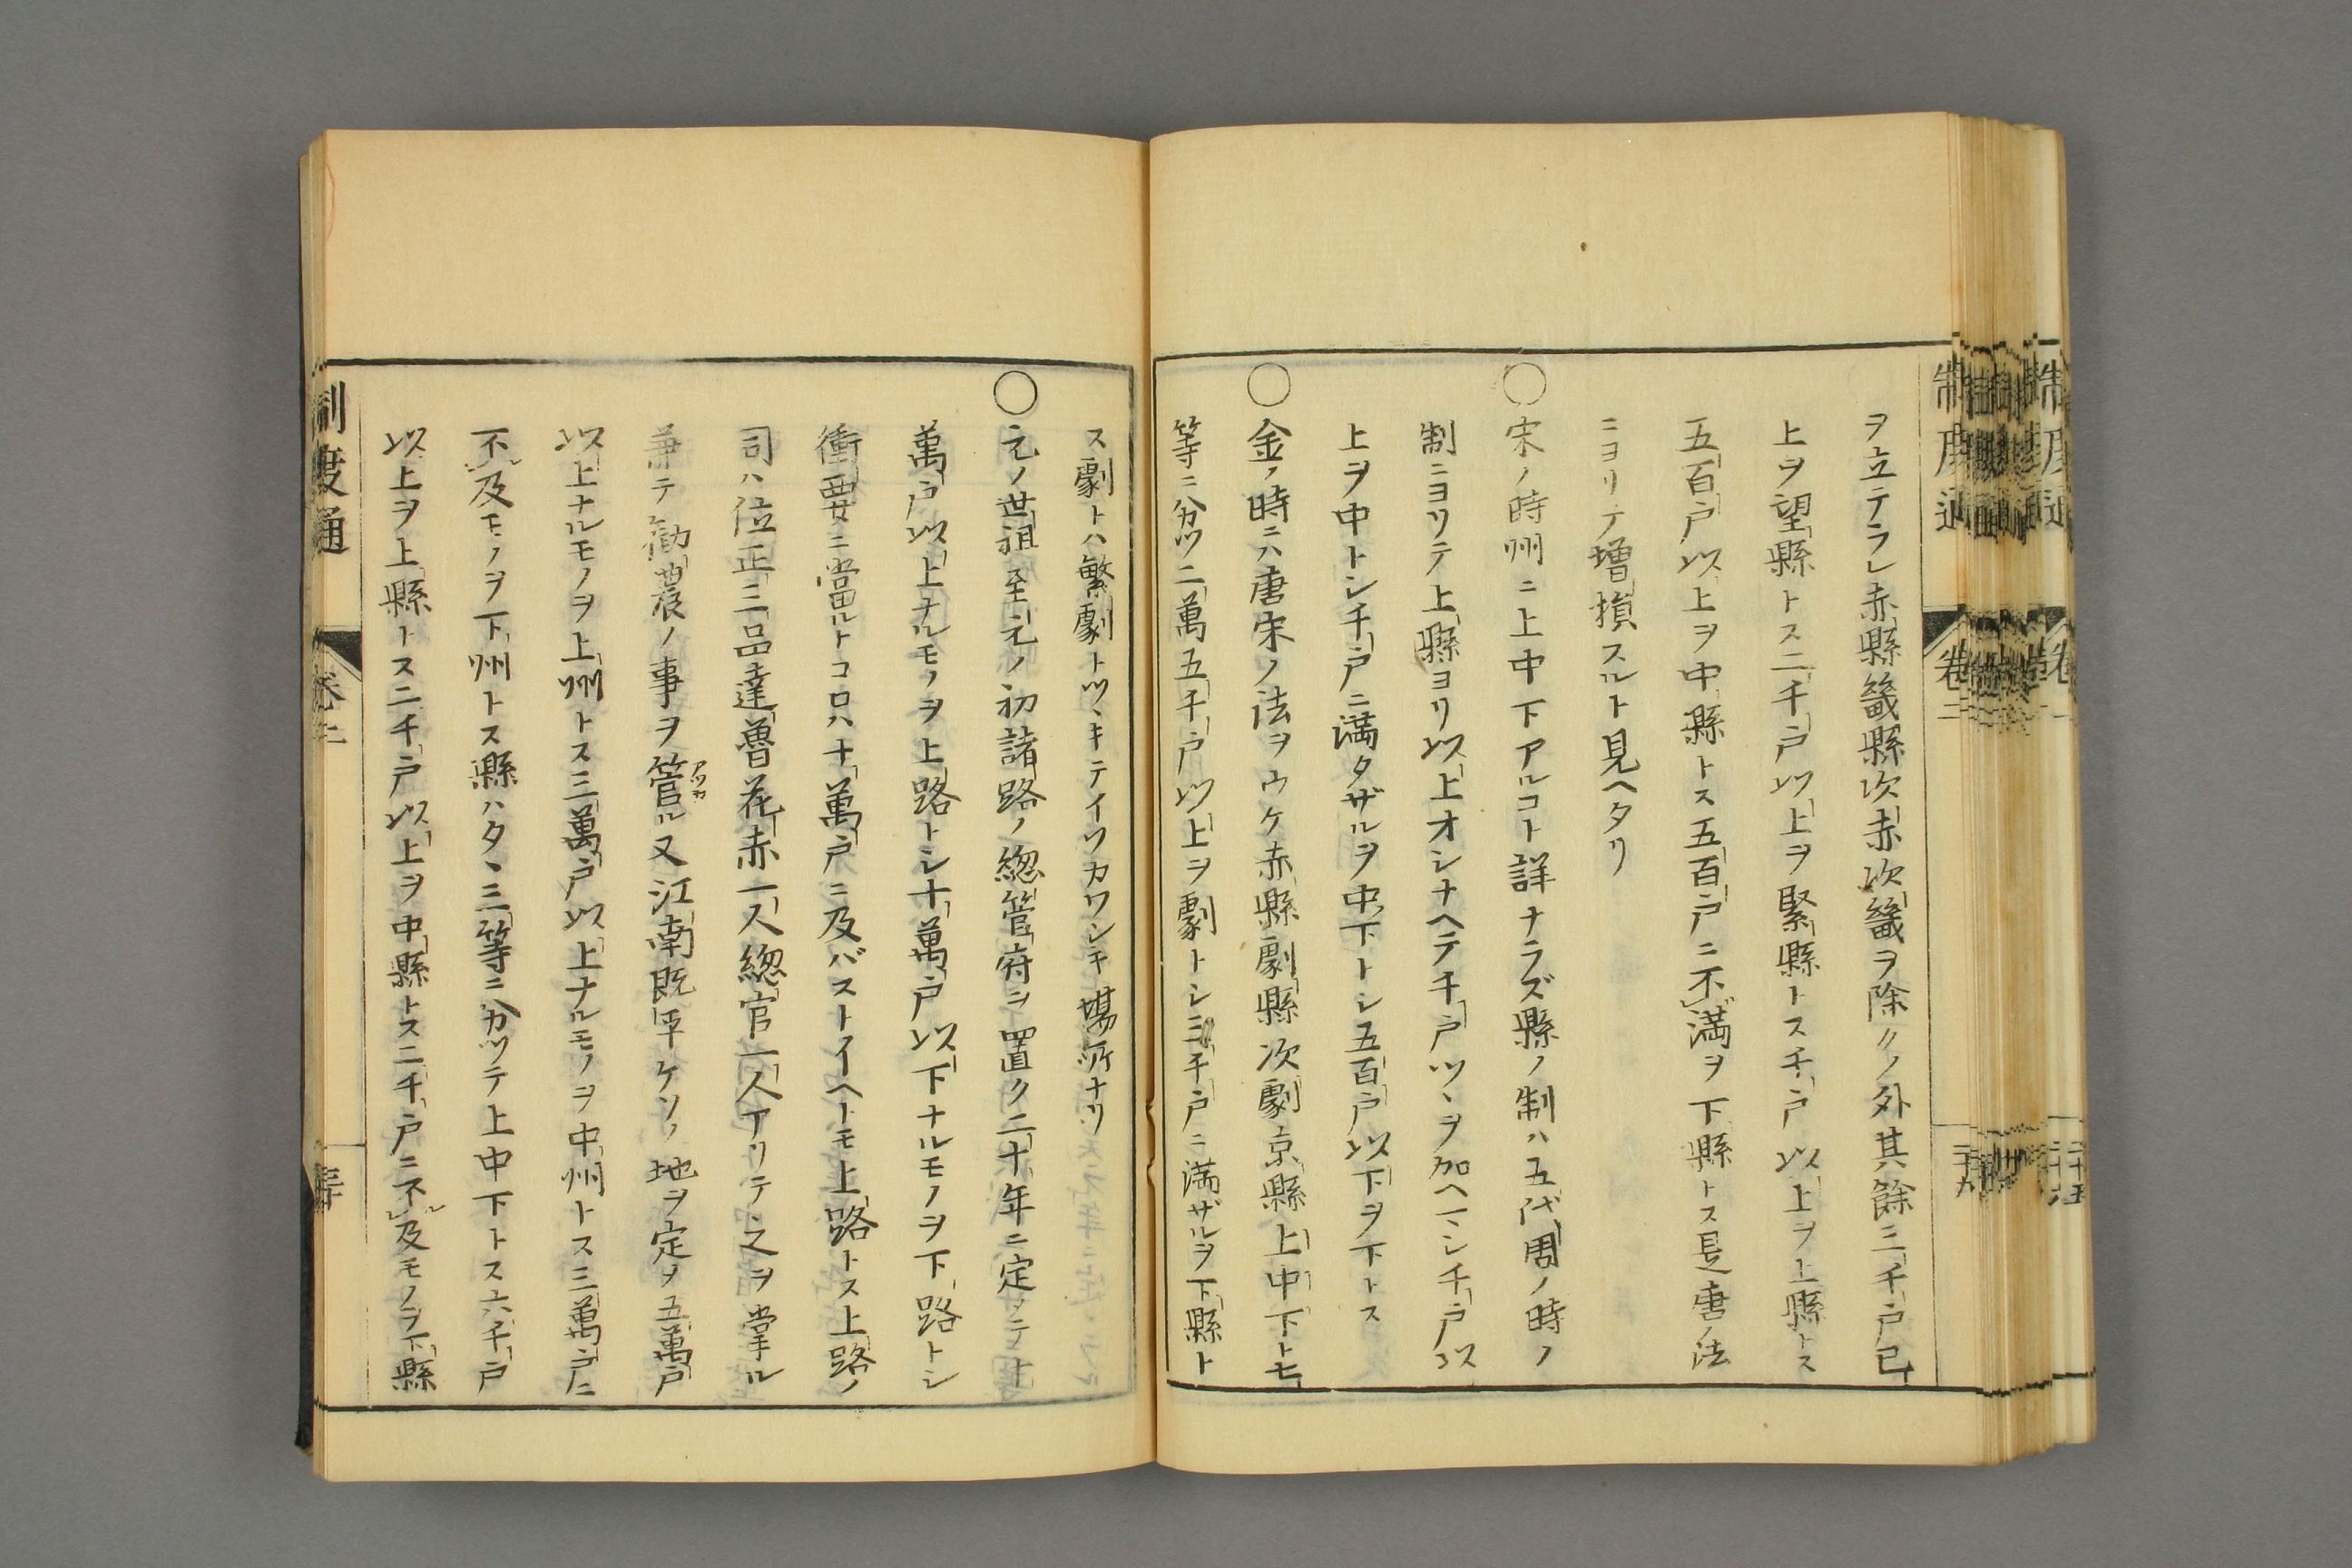 ヲ立テラレ赤縣畿縣次赤次畿ヲ除クノ外其餘三千戸已
上ヲ望縣トス二千戸以上ヲ緊縣トス千戸以上ヲ上縣トス
五百戸以上ヲ中縣トス五百戸ニ不満ヲ下縣トス是唐ノ法
ニヨリテ増損スルト見ヘタリ
○宋ノ時州ニ上中下アルコト詳ナラズ縣ノ制ハ五代周ノ時ノ
制ニヨリテ上縣ヨリ以上オシナヘテ千戸ツヽヲ加ヘ二千戸以
上ヲ中トシ千戸ニ満タザルヲ中下トシ五百戸以下ヲ下トス
○金ノ時ニハ唐宋ノ法ヲウケ赤縣劇縣次劇京縣上中下ト七
等ニ分ツ二萬五千戸以上ヲ劇トシ三千戸ニ満ザルヲ下縣ト
ス劇トハ繁劇トツヽキテイソカワシキ場所ナリ
○元ノ世祖至元ノ初諸路ノ總管府ヲ置ク二十年ニ定メテ十
萬戸以上ナルモノヲ上路トシ十萬戸以下ナルモノヲ下路トシ
衝要ニ當ルトコロハ十萬戸ニ及バストイヘトモ上路トス上路ノ
司ハ位正三品達魯花赤一人總官一人アリテ之ヲ掌ル
兼テ勧農ノ事ヲ管ル又江南既平ケソノ地ヲ定ヲ五萬戸
アツカ
以上ナルモノヲ上州トス三萬戸以上ナルモノヲ中州トス三萬戸ニ
不及モノヲ下州トス縣ハタヽ三等ニ分ツテ上中下トス六千戸
以上ヲ上縣トス二千戸以上ヲ中縣トス二千戸ニ不及モノヲ下縣
制度通
卷二